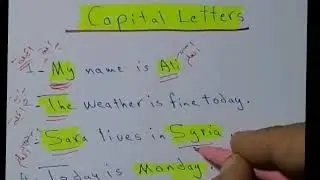 Capital Letters
1- My name is Ali
2- The weather is fine today.
- Sara lives in Syria
Today is Monday